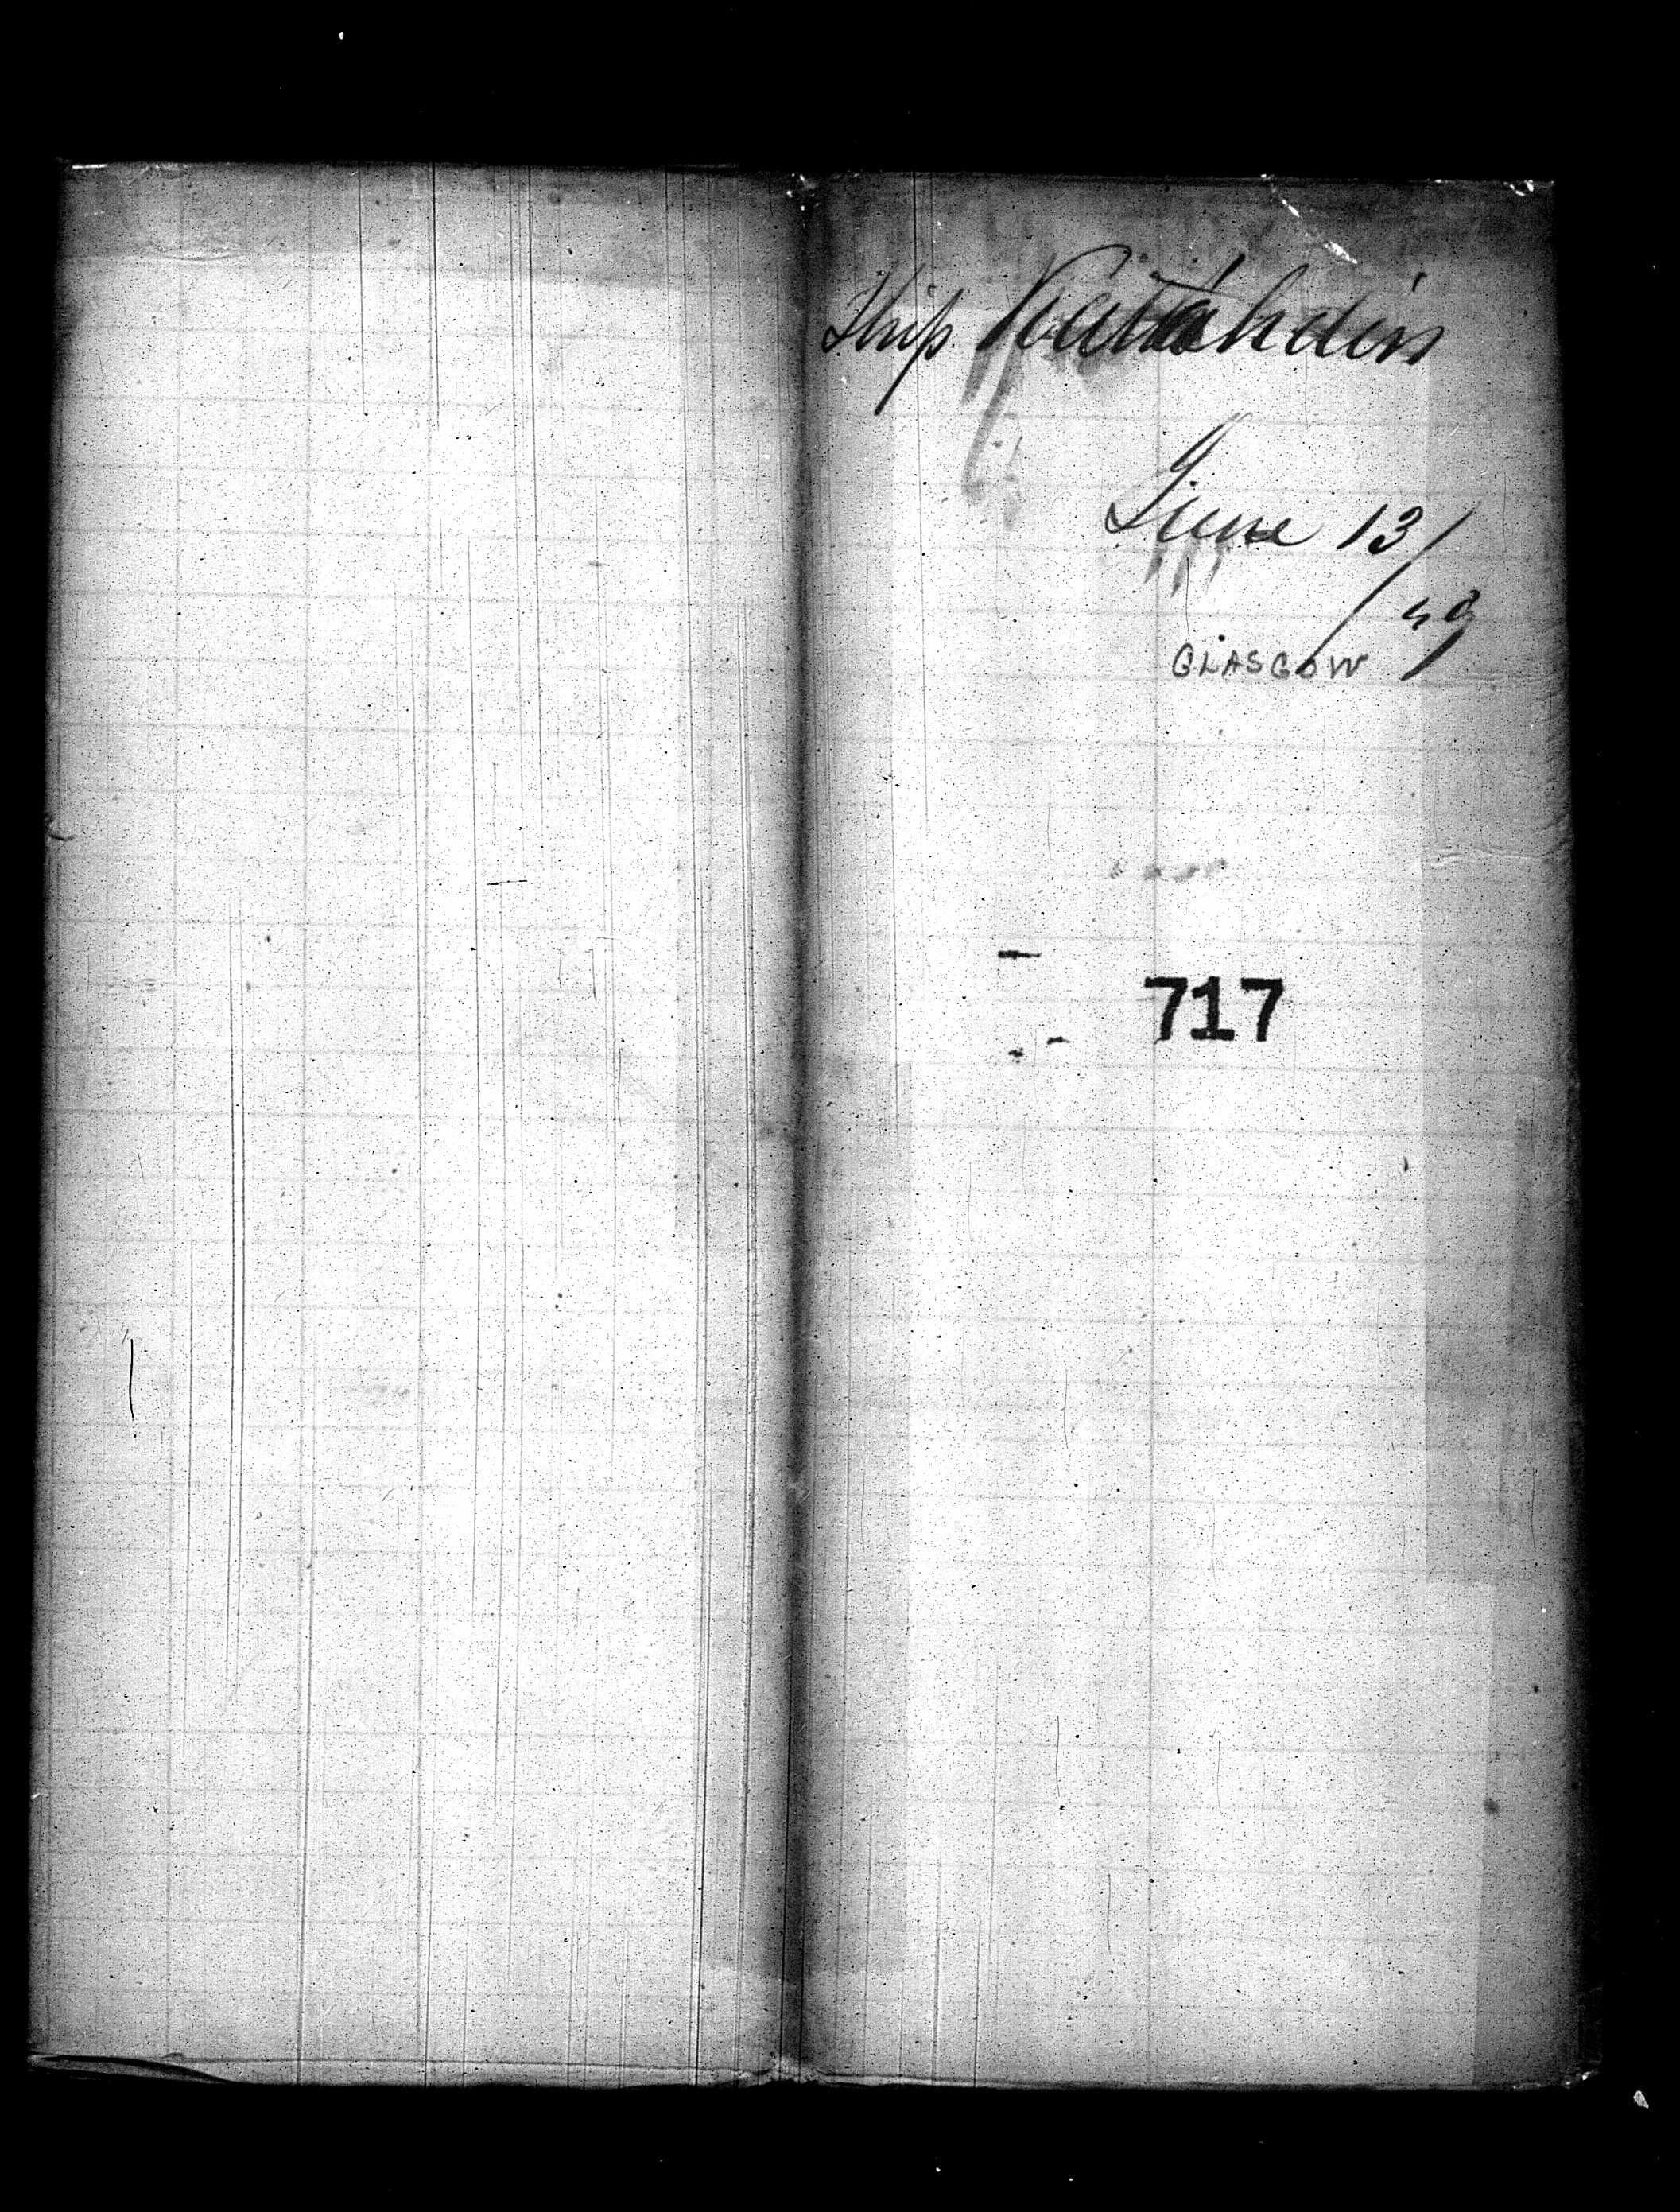 Ship Katahdin
June 13/
/49
GLASGOW
717